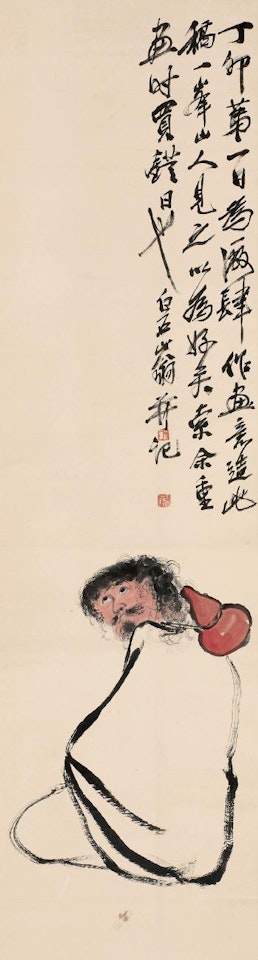 丁卯第一日為廠肆作畫意造此
稿一峯山人見之以為好矣索余重
畫時買鐙日也
白石山翁并記